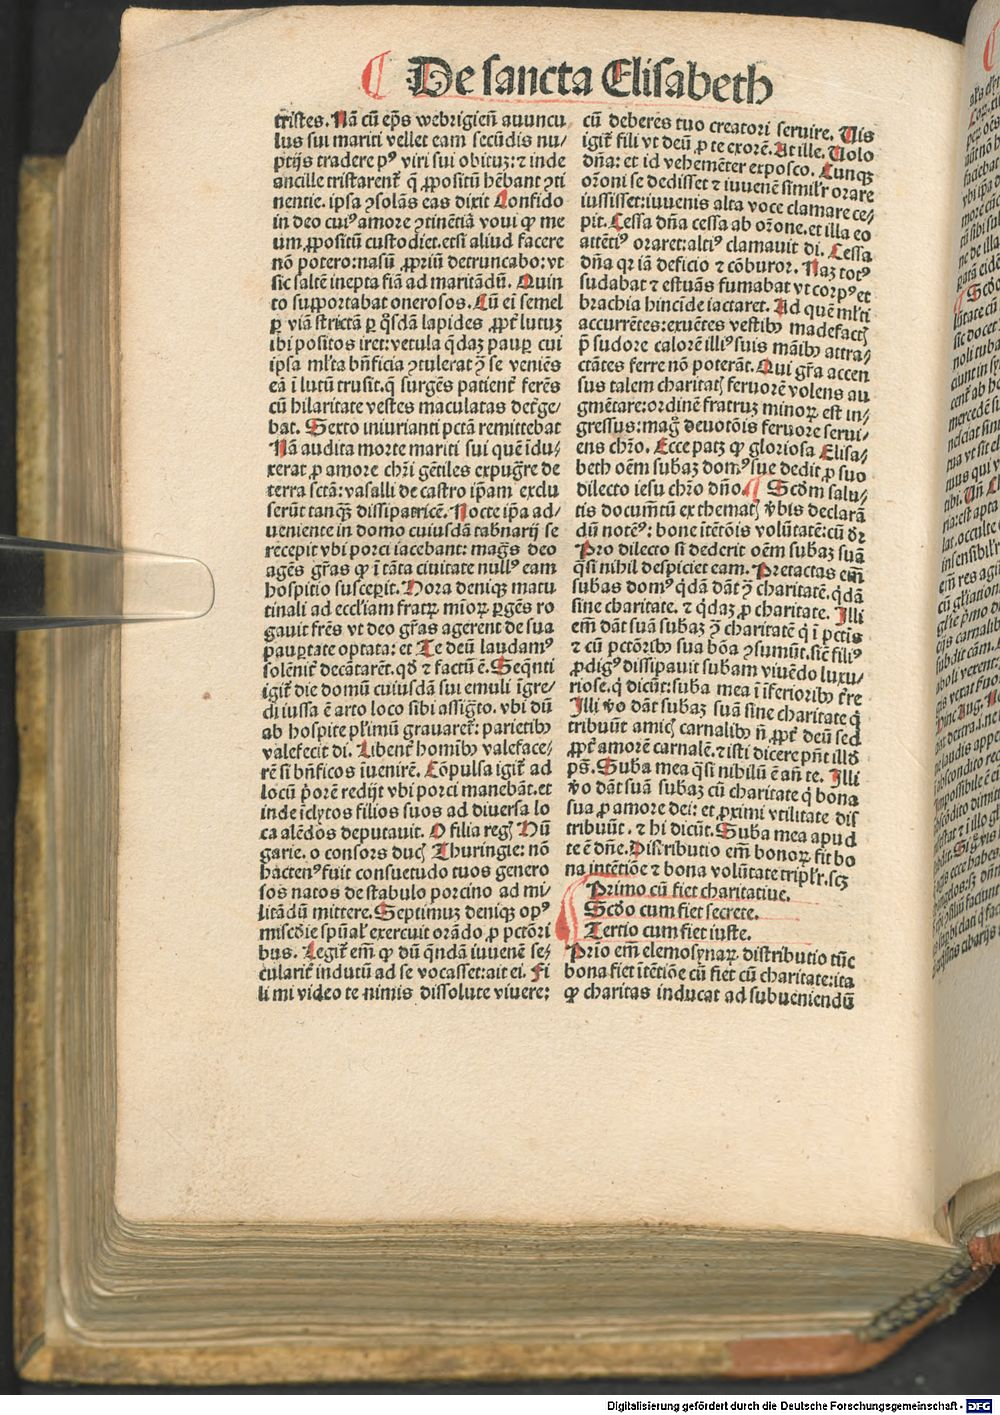 De sancta Elisabeth
tristes. Nã cũ ep̃s webrigieñ auuncu
lus sui mariti vellet eam secũdis nu/
ptijs tradere pꝰ viri sui obitũ: ⁊ inde
ancille tristarent̃ q̃ ꝓpositũ hẽbant ꝯti
nentie. ipsa ꝯsolãs eas dixit Confido
in deo cuiꝰ amore ꝯtinẽtiã voui ꝙ me
um ꝓpositũ custodiet. etsi aliud facere
nõ potero: nasũ ꝓpriũ detruncabo: vt
sic saltẽ inepta fiã ad maritãdũ. Quin
to supportabat onerosos. Cũ ei semel
ꝑ viã strictã ꝑ q̃sdã lapides ꝓpt̃ lutuꝫ
ibi positos iret: vetula q̃daꝫ pauꝑ cui
ipsa ml̃ta bñficia ꝯtulerat ꝯ̃ se veniẽs
eã ĩ lutũ trusit. q̃ surgẽs patient̃ ferẽs
cũ hilaritate vestes maculatas det̃ge/
bat. Sexto iniurianti pctã remittebat
Nã audita morte mariti sui quẽ ĩdu/
xerat ꝓ amore chr̃i gẽtiles expug̃re de
terra sctã: vasalli de castro ip̃am exclu
serũt tanqꝫ dissipatricẽ. Nocte ip̃a ad/
ueniente in domo cuiusdã tab̃narij se
recepit vbi porci iacebant: mag̃s deo
agẽs gr̃as ꝙ ĩ tãta ciuitate nullꝰ eam
hospitio suscepit. Hora deniqꝫ matu
tinali ad eccl̃iam fratꝝ mĩoꝝ ꝑgẽs ro
gauit fr̃es vt deo gr̃as agerent de sua
pauꝑtate optata: et Te deũ laudamꝰ
solẽnit̃ decãtarẽt. qð ⁊ factũ ẽ. Seq̃nti
igit̃ die domũ cuiusdã sui emuli ĩgre/
di iussa ẽ arto loco sibi assig̃to. vbi dũ
ab hospite pl̃imũ grauaret̃: parietibꝰ
valefecit di. Libent̃ homĩbꝰ valeface/
rẽ si bñficos ĩuenirẽ. Cõpulsa igit̃ ad
locũ p̃orẽ redijt vbi porci manebãt. et
inde ĩclytos filios suos ad diuersa lo
ca alẽdos deputauit. O filia regꝭ Hũ
garie. o consors ducꝭ Thuringie: nõ
hactenꝰ fuit consuetudo tuos genero
sos natos de stabulo porcino ad mi/
litãdũ mittere. Septimuꝫ deniqꝫ opꝰ
misc̃die spũal̃ exercuit orãdo ꝓ pctõri
bus. Legit̃ em̃ ꝙ dũ q̃ndã iuuenẽ se/
cularit̃ indutũ ad se vocasset: ait ei. Fi
li mi video te nimis dissolute viuere:
cũ deberes tuo creatori seruire. Vis
igit̃ fili vt deũ ꝓ te exorẽ. At ille. Uolo
dña: et id vehemẽter exposco. Cunqꝫ
or̃oni se dedisset ⁊ iuuenẽ simil̃r orare
iussisset: iuuenis alta voce clamare ce/
pit. Cessa dña cessa ab or̃one. et illa eo
attẽtiꝰ oraret: altiꝰ clamauit di. Cessa
dña qr iã deficio ⁊ cõburor. Naꝫ totꝰ
sudabat ⁊ estuãs fumabat vt corpꝰ et
brachia hincĩde iactaret. Ad quẽ ml̃ti
accurrẽtes: exuẽtes vestibꝰ madefactꝭ
p̃ sudore calorẽ illiꝰ suis mãibꝰ attra/
ctãtes ferre nõ poterãt. Qui gr̃a accen
sus talem charitatꝭ feruorẽ volens au
gmẽtare: ordinẽ fratruꝫ minoꝝ est in/
gressus: mag̃ deuotõis feruore serui/
ens chr̃o. Ecce patꝫ ꝙ gloriosa Elisa/
beth oẽm subaꝫ domꝰ sue dedit ꝓ suo
dilecto iesu chr̃o dño. Scðm salu/
tis documẽtũ ex thematꝭ v̾bis declarã
dũ notẽꝰ: bone ĩtẽtõis volũtatẽ: cũ dr̃
Pro dilecto si dederit oẽm subaꝫ suã
q̃si nihil despiciet eam. Pretactas em̃
subas domꝰ q̃dã dãt ꝯ̃ charitatẽ. q̃dã
sine charitate. ⁊ q̃daꝫ ꝓ charitate. Illi
em̃ dãt suã subaꝫ ꝯ̃ charitatẽ q̃ ĩ pctis
⁊ cũ pctõribꝰ sua bõa ꝯsumũt. sic̃ filiꝰ
ꝓdigꝰ dissipauit subam viuẽdo luxu/
riose. q̃ dicũt: suba mea ĩ ĩferioribꝰ t̃re
Illi v̾o dãt subaꝫ suã sine charitate q̃
tribuũt amicꝭ carnalibꝰ ñ ꝓpt̃ deũ sed
ꝓpt̃ amorẽ carnalẽ. ⁊ isti dicere pñt illð
pš. Suba mea q̃si nihilũ ẽ añ te. Illi
v̾o dãt suã subaꝫ cũ charitate q̃ bona
sua ꝓ amore dei: et ꝓximi vtilitate dis
tribuũt. ⁊ hi dicũt. Suba mea apud
te ẽ dñe. Distributio em̃ bonoꝝ fit bo
na intẽtiõe ⁊ bona volũtate tripl̃r. scꝫ
Primo cũ fiet charitatiue.
Scðo cum fiet secrete.
Tertio cum fiet iuste.
Prĩo em̃ elemosynaꝝ distributio tũc
bona fiet ĩtẽtiõe cũ fiet cũ charitate: ita
ꝙ charitas inducat ad subueniendũ
Digitalisierung gefördert durch die Deutsche Forschungsgemeinschaft - DFG